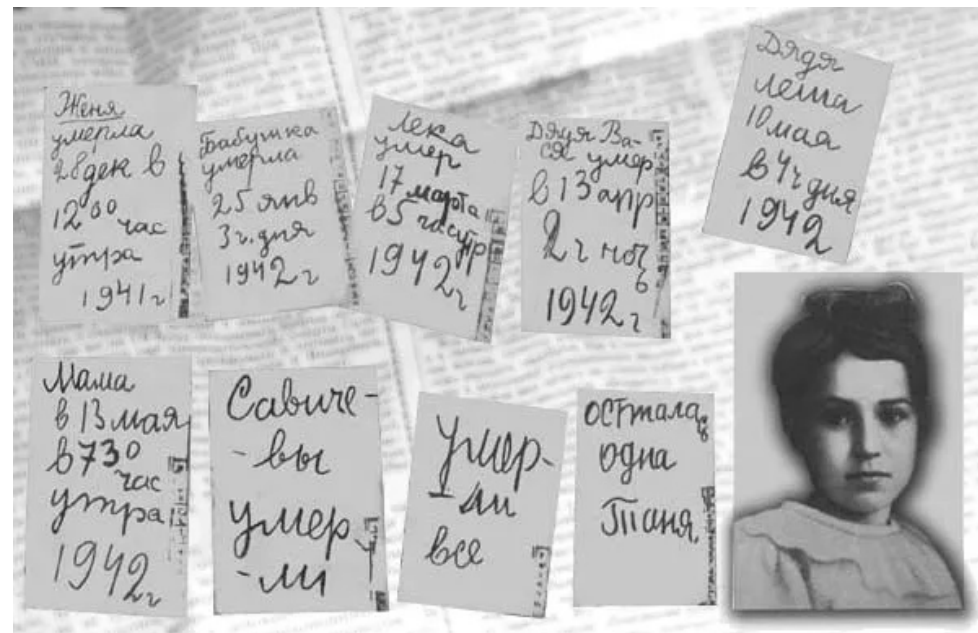 Женя
умерла
28 дек в
12 00 час
утра
1941 г
Бабушка
умерла
25 янв
3 ч. дня
1942 г
Лека
умер
17 марта
в 5 час утр
1942 г
Дядя Ва-
ся умер
в 13 апр
2 ч ночь
1942 г
Дядя
Леша
10 мая
в 4 ч дня
1942
Мама
в 13 мая
в 7 30
час
утра
1942 г
Савиче-
-вы
умер
-ли
Умер-
-ли
все
Осталась
одна
Таня